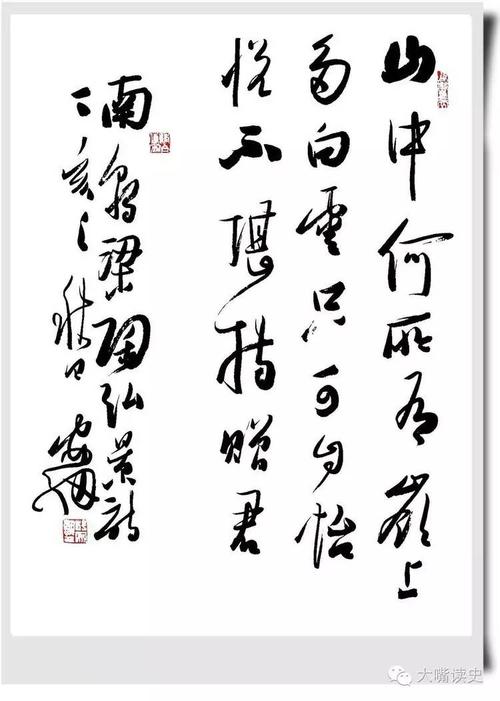 山中何所有嶺上
多白雲只可自怡
悅不堪持贈君
南朝梁陶弘景詩
丁亥之秋日
大嘴读史